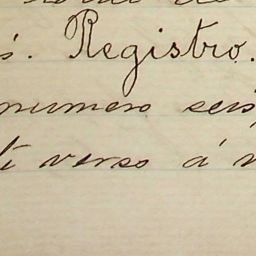 s. Registro.
numero seis
ti verso á v